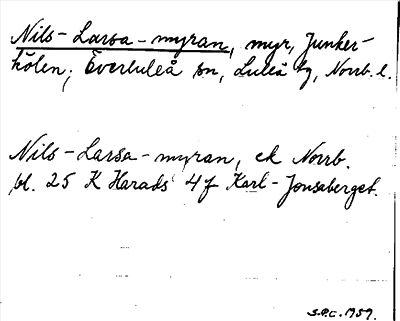 Nils-Larsa-myran, myr, Junker-
hölen, Överluleå sn, Luleå tg, Norrb. l.
Nils-Larsa-myran, ek Norrb.
bl. 25 K Harads 4f Karl-Jonsaberget.
S.P.C. 1959.